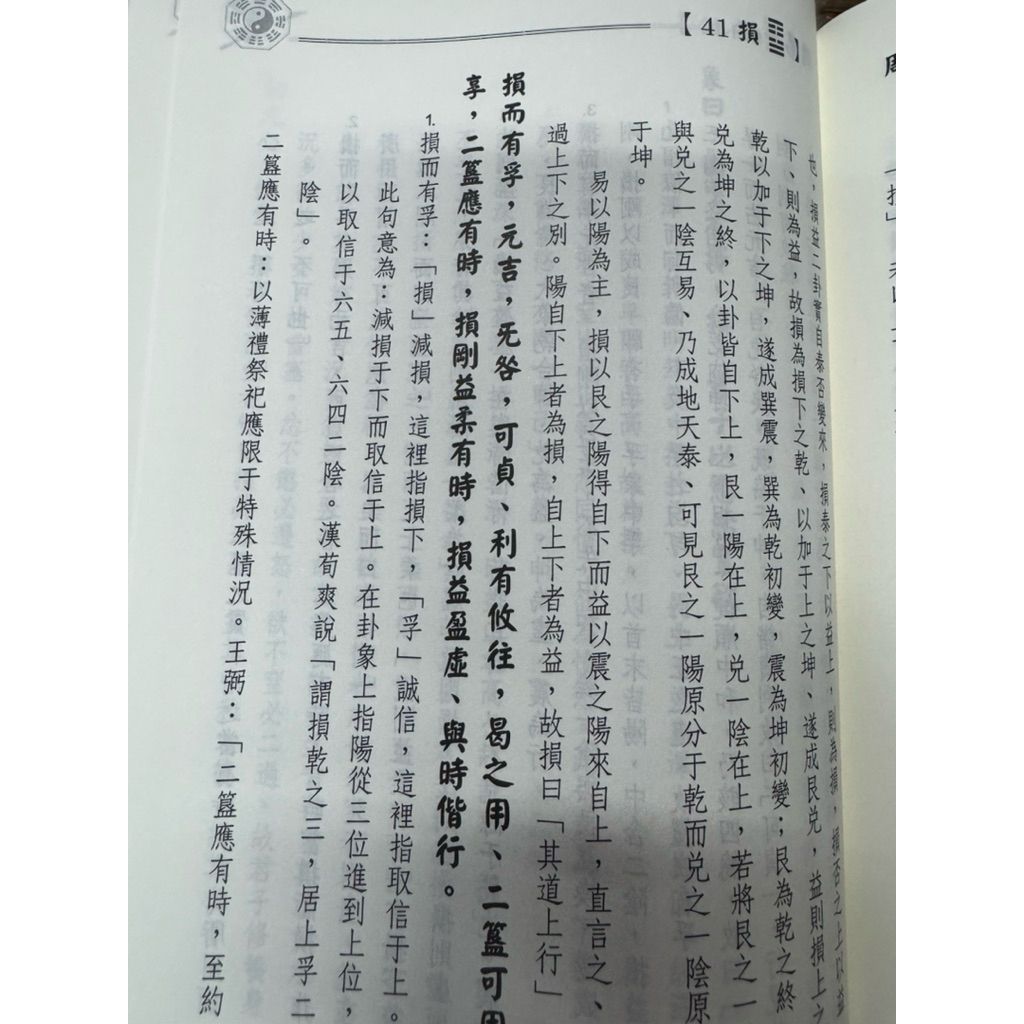 【41 損䷨】
也，損益二卦實自泰否變來，損泰之下以益上，則為損，損否之上以益
下、則為益，故損為損下之乾、以加于上之坤、遂成艮兌，益則損上之
乾以加于下之坤，遂成巽震，巽為乾初變，震為坤初變；艮為乾之終
兌為坤之終，以卦皆自下上，艮一陽在上，兌一陰在上，若將艮之一
與兌之一陰互易、乃成地天泰、可見艮之一陽原分于乾而兌之一陰原
于坤。
易以陽為主，損以艮之陽得自下而益以震之陽來自上，直言之、
過上下之別。陽自下上者為損，自上下者為益，故損曰「其道上行」
損而有孚，元吉，旡咎，可貞、利有攸往，曷之用、二簋可用
享，二簋應有時，損剛益柔有時，損益盈虛、與時偕行。
1. 損而有孚：「損」減損，這裡指損下，「孚」誠信，這裡指取信于上。
此句意為：減損于下而取信于上。在卦象上指陽從三位進到上位，
以取信于六五、六四二陰。漢荀爽說「謂損乾之三，居上孚二
陰」。
2.
二簋應有時：以薄禮祭祀應限于特殊情況。王弼：「二簋應有時，至約